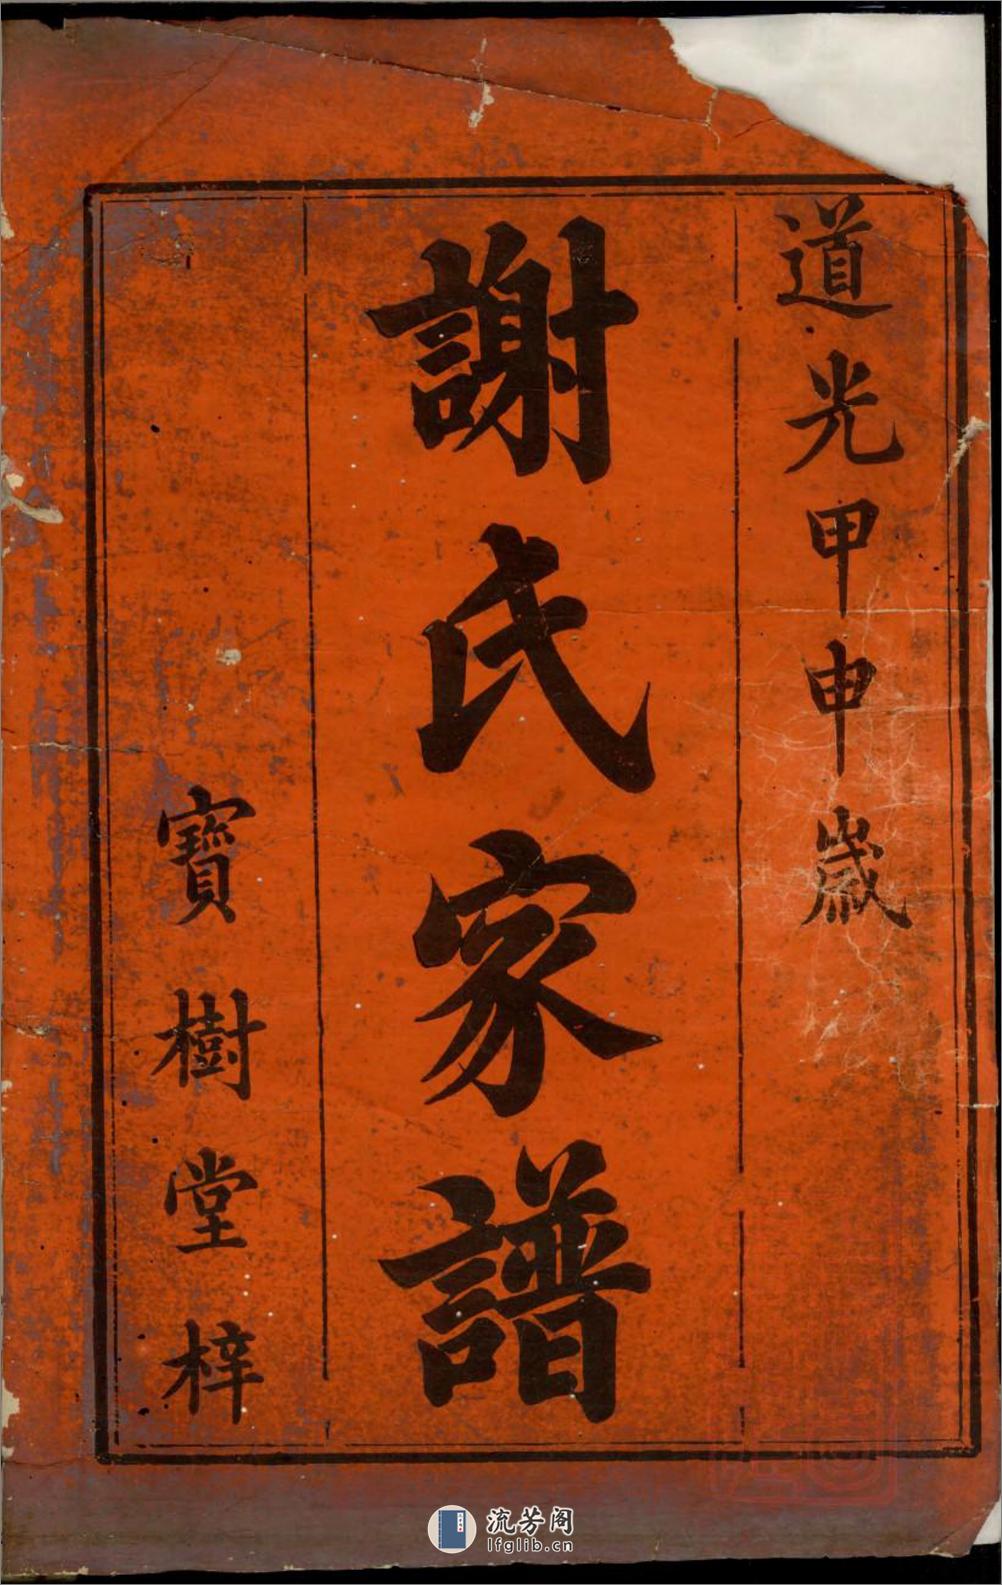 道光甲申歲
謝氏家譜
寶樹堂梓
流芳阁
lfglib.cn